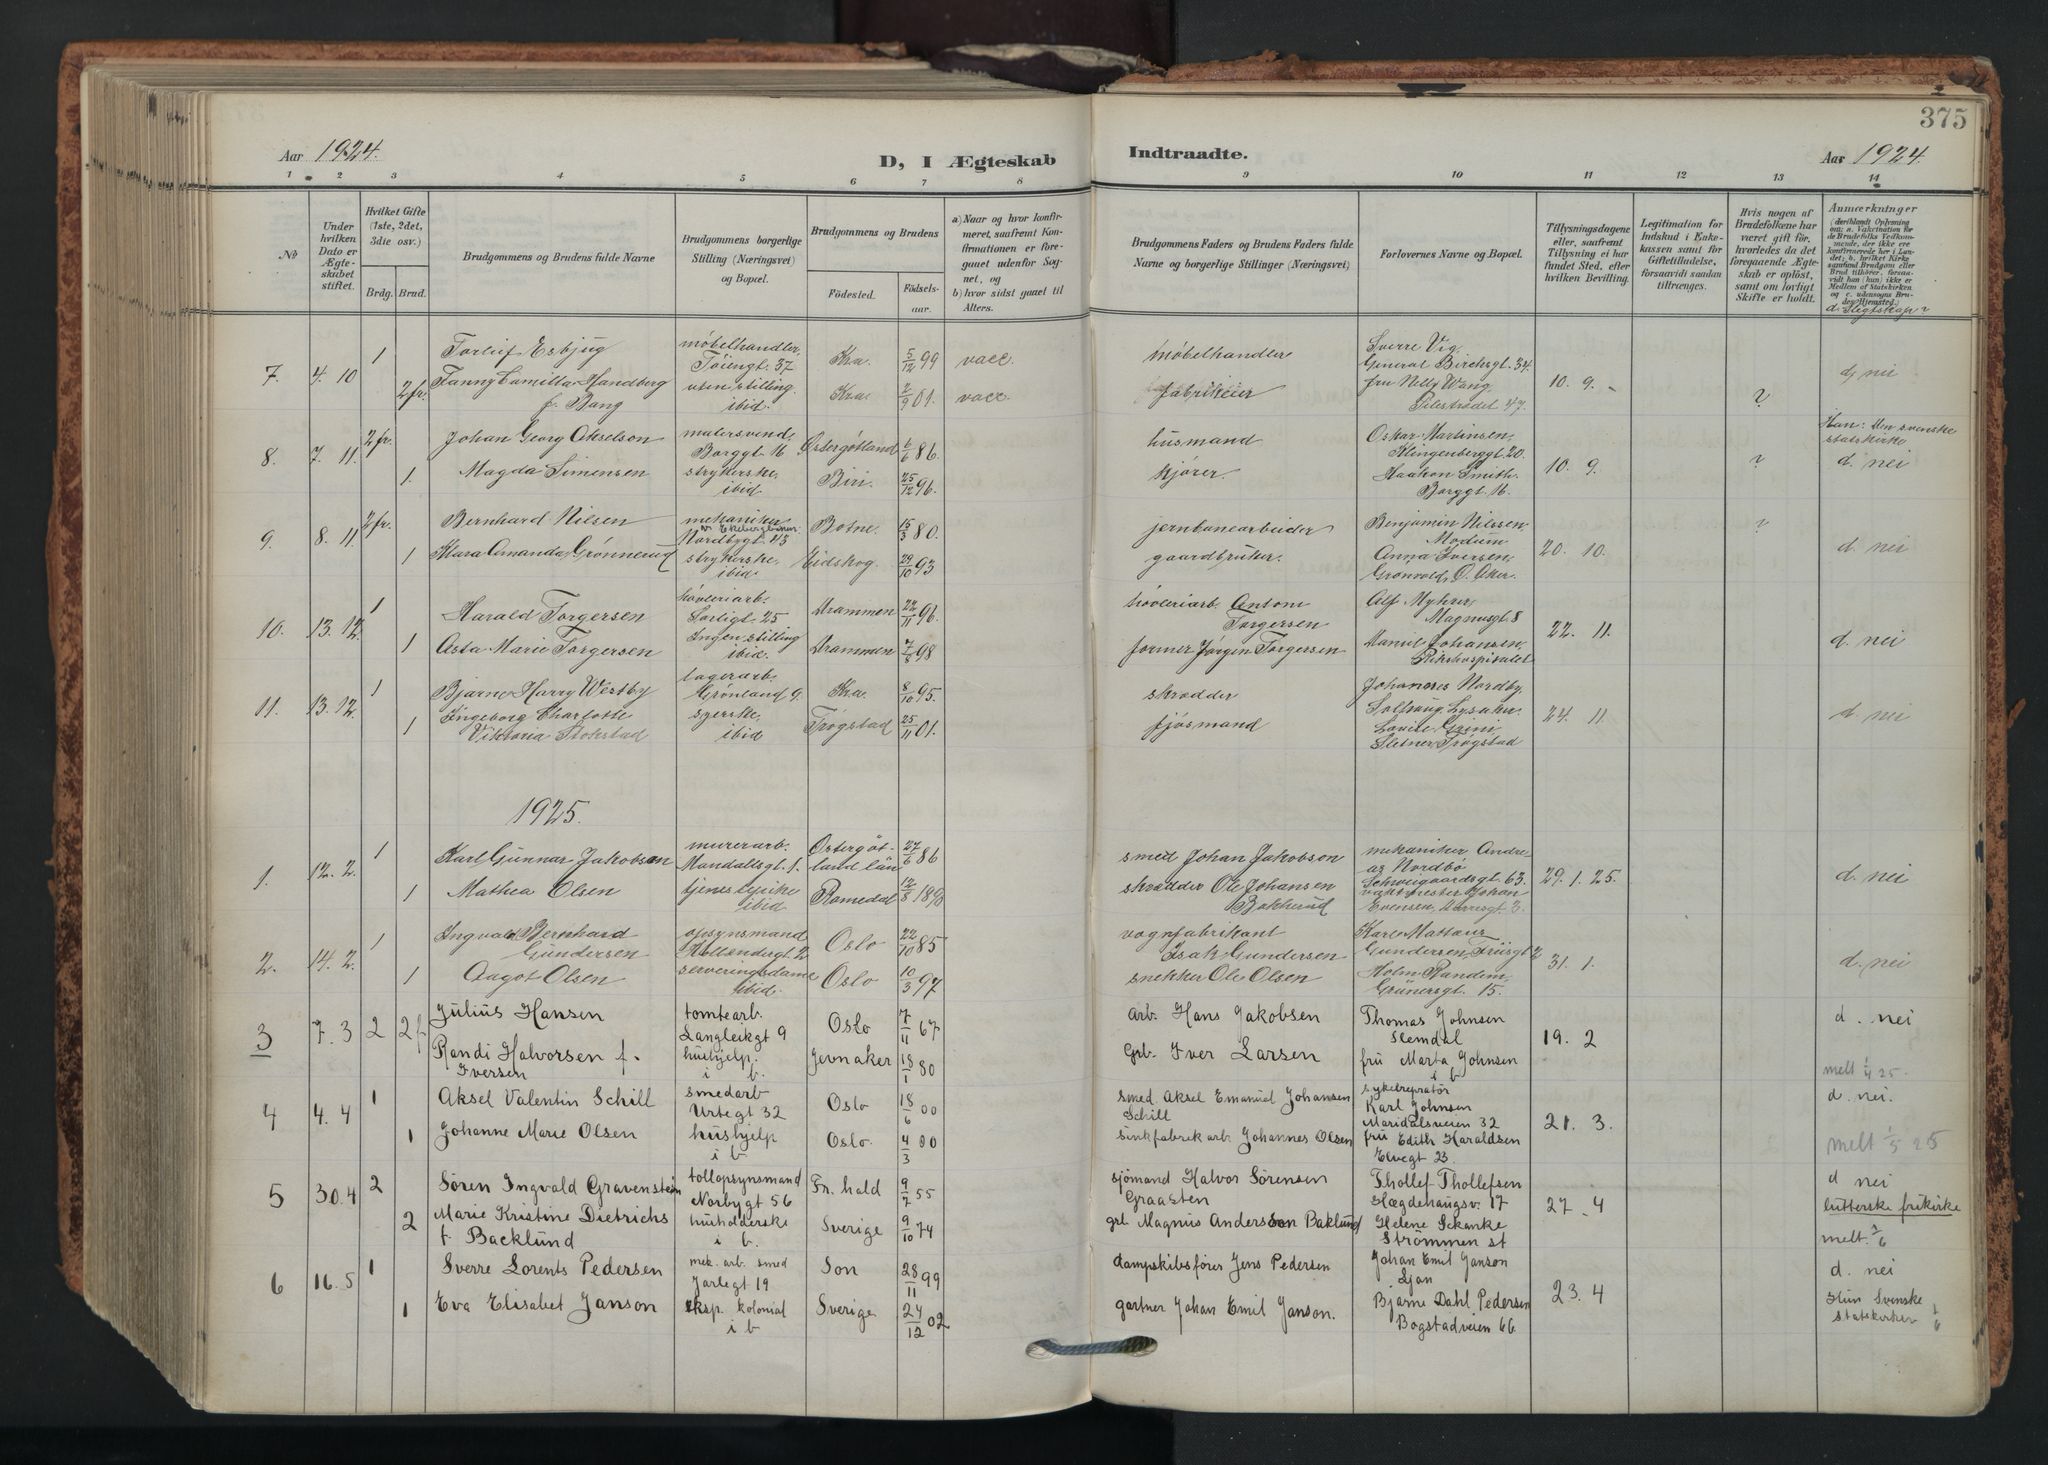 375
Aar 1924.
D, I Ægteskab Indtraadte.
Aar 1924.
1 2 3 4 5 6 7 8 9 10 11 12 13 14
No
Under hvilken Dato er Ægteskabet stiftet.
Hvilket Gifte (1ste, 2det, 3die osv.)
Brdg. Brud.
Brudgommens og Brudens fulde Navne
Brudgommens borgerlige Stilling (Næringsvei) og Bopæl.
Brudgommens og Brudens
Fødested. Fødselsaar.
a) Naar og hvor konfirmeret, saafremt Konfirmationen er foregaaet udenfor Sognet, og
b) hvor sidst gaaet til Alters.
Brudgommens Faders og Brudens Faders fulde Navne og borgerlige Stillinger (Næringsvei)
Forlovernes Navne og Bopæl.
Tillysningsdagene eller, saafremt Tillysning ei har fundet Sted, efter hvilken Bevilling.
Legitimation for Indskud i Enkekassen samt for Giftetilladelse, forsaavidt saadan tiltrænges.
Hvis nogen af Brudefolkene har været gift før, hvorledes da det foregaaende Ægteskab er opløst, samt om lovligt Skifte er holdt.
Anmærkninger
(deriblandt Oplysning om: a. Vakcination for de Brudefolks Vedkommende, der ikke ere konfirmerede her i Landet; b. hvilket Kirkesamfund Brudgom eller Brud tilhører, forsaavidt han (hun) ikke er Medlem af Statskirken og c. udensogns Brudes Hjemsted.)
d. Slegtskap?
7. 4. 10 1 Torleif Esbjug møbelhandler, Tøiengt. 37 Kra 5/12 99 vacc. møbelhandler Sverre Vig, General Birchsgt. 34. 10. 9. d. nei
2 fr. Fanny Camilla Handberg f. Bang uten stilling ibid. Kra 2/9 01. vacc. fabrikeier fru Nelly Wang Pilestrædet 47. ?
8. 7. 11. 2 fr. Johan Georg Akselson malersvend, Borggt. 16 Østergøtland 6/6 86. husmand Oskar Martinsen, Klingenberggt. 20. 10. 9. ? Han: den svenske statskirke
1. Magda Simensen strykerske, ibid. Biri. 25/12 96. kjører. Haakon Smith Borggt. 16. d. nei
9. 8. 11. 2 fr. Bernhard Nilsen mekaniker v. Ekebergbanen. Nordbygt. 43 Botne 15/3 80. jernbanearbeider Benjamin Nilssen, Modum 20. 10. ? d. nei
1 Klara Amanda Grønnerud strykerske, ibid. Eidskog. 29/10 93 gaardbruker. Anna Iversen, Grønvold, Ø. Aker.
10. 13. 12. 1 Harald Torgersen høvleriarb. Sørligt. 25 Drammen 22/11 96. høvleriarb. Anton Torgersen Alf Myhrer, Magnusgt. 8 22. 11. d. nei
1 Asta Marie Torgersen Ingen stilling ibid. Drammen 7/8 98 former Jørgen Torgersen Johansen, Rikshospitalet
11. 13. 12. 1 Bjarne Harry Westby lagerarb. Grønland 9. Kra. 8/10 95. skrædder Johannes Nordby, Lysaker. 24. 11. d. nei
1 Ingeborg Charlotte Viktoria Stokstad syerske, ibid Trøgstad 25/11 01. fjøsmand Sletner, Trøgstad
1925.
1. 12. 2. 1 Karl Gunnar Jakobson murerarb. Mandallsgt. 1. Ostergötland län 27/6 86 smed Johan Jakobson mekaniker Andreas Nordbø Schweigaardsgt. 63. 29. 1. 25. d. nei
1 Mathea Olsen tjenestepike ibid Romedal 12/8 1890 skrædder Ole Johansen Bakkerud vaktmester Johan Evensen, Norresgt. 3.
2. 14. 2. 1 Ingvald Bernhard Gundersen opsynsmand Hollendergt. 2 Oslo 22/10 85 vognfabrikant Isak Gundersen Karl Mattæus Gundersen, Friisgt 2 31. 1. d. nei
1 Aagot Olsen serveringsdame ibid. Oslo 10/3 97 snekker Ole Olsen Holm Randem, Grünersgt. 15.
3 7. 3 2 Julius Hansen tomtearb. Langleikgt 9 Oslo 7/11 67 Arb. Hans Jakobsen Thomas Johnsen Slemdal 19. 2 d. nei
2 f Randi Halvorsen f. Iversen hushjelp. i b. Jevnaker 18/1 80 Grb. Iver Larsen fru Marta Johnsen i b melt 1/4 25.
4 4. 4 1 Aksel Valentin Schill smedarb Urtegt 32 Oslo 18/6 00 smed. Aksel Emanuel Johansen Schill sykelrepratør Karl Johnsen Maridalsveien 32 21. 3. d. nei.
1 Johanne Marie Olsen hushjelp i b Oslo. 4/3 00 sinkfabrikarb. Johannes Olsen fru Edith Haraldsen Elvegt 23. melt 1/5 25
5 30.4 2 Søren Ingvald Gravenstein tollopsynsmand Norbygt 56 Fr. hald 9/7 55 sjømand Halvor Sørensen Graasten Thollef Thollefsen Hægdehaugsv. 17 27. 4 d nei lutterske frikirke
2 Marie Kristine Dietrichs f. Backlund husholderske i b. Sverige 9/10 74 grb Magnus Anderson Baklund Helene Skanke Strømmen st melt. 1/6
6 16.5 1 Sverre Lorents Pedersen mek. arb. smed Jarlegt 19 Son 28/11 99 dampskibsfører Jens Pedersen Johan Emil Janson Ljan 23. 4 d. nei
1 Eva Elisabet Janson eksp. kolonial i b Sverige 24/12 02 gartner Johan Emil Janson. Bjarne Dahl Pedersen Bogstadveien 66. Hun Svenske statskirken 1/6